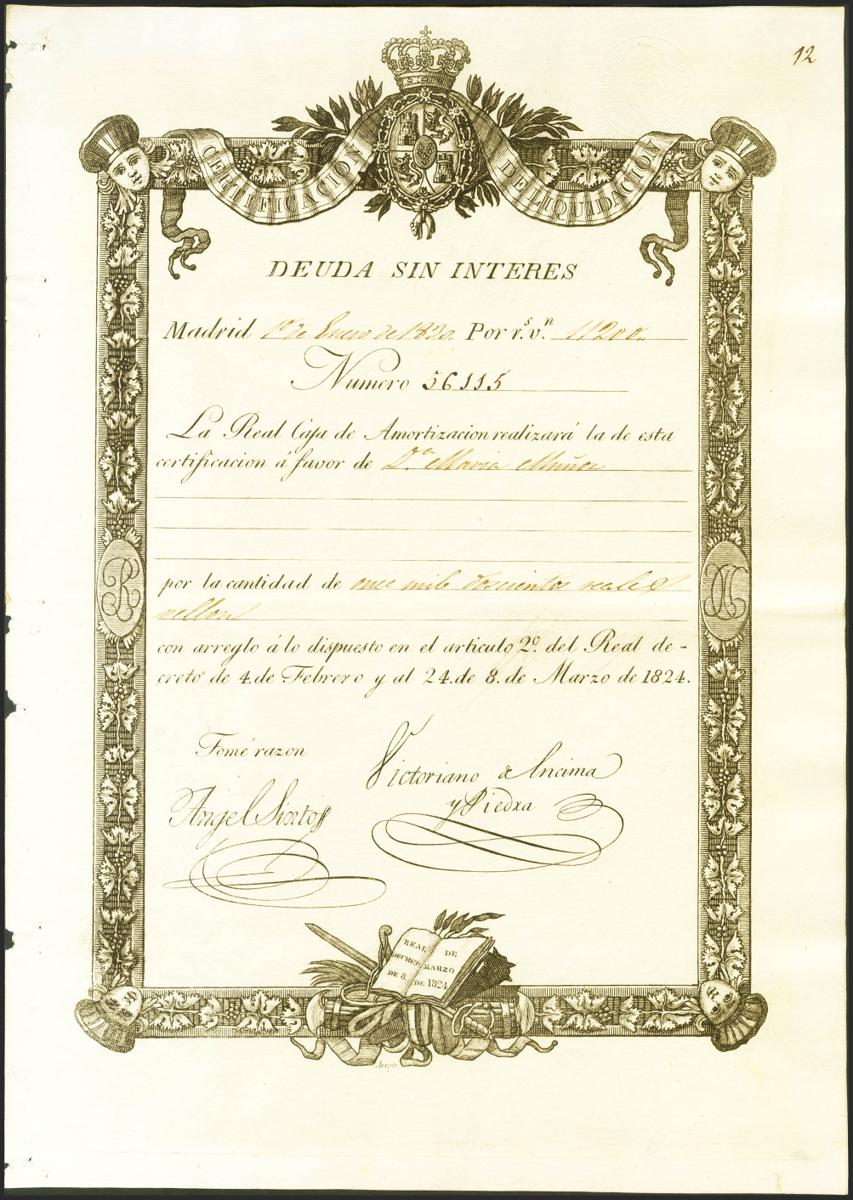 12
CERTIFICACION DE LIQUIDACION
DEUDA SIN INTERES
Madrid 1º de Enero de 1830. Por r.s v.n 11200.
Numero 56115
La Real Caja de Amortizacion realizará la de esta
certificacion á favor de D.ª Maria Muñoz
por la cantidad de once mil doscientos reales
vellon
con arreglo á lo dispuesto en el articulo 2º. del Real de-
creto de 4. de Febrero y al 24. de 8. de Marzo de 1824.
Tomé razon
Victoriano de Encima
y Piedra
Angel Sixtos
REAL DECRETO DE 8. DE MARZO DE 1824